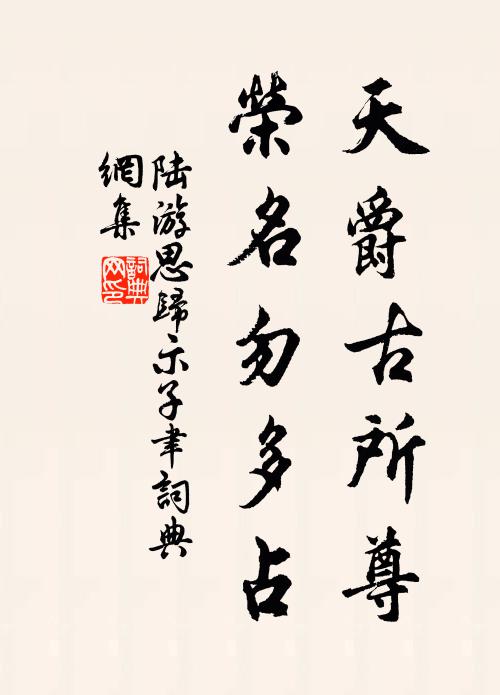 天爵古所尊
榮名勿多占
陸游思歸示子聿詞典
網集
詞典網印